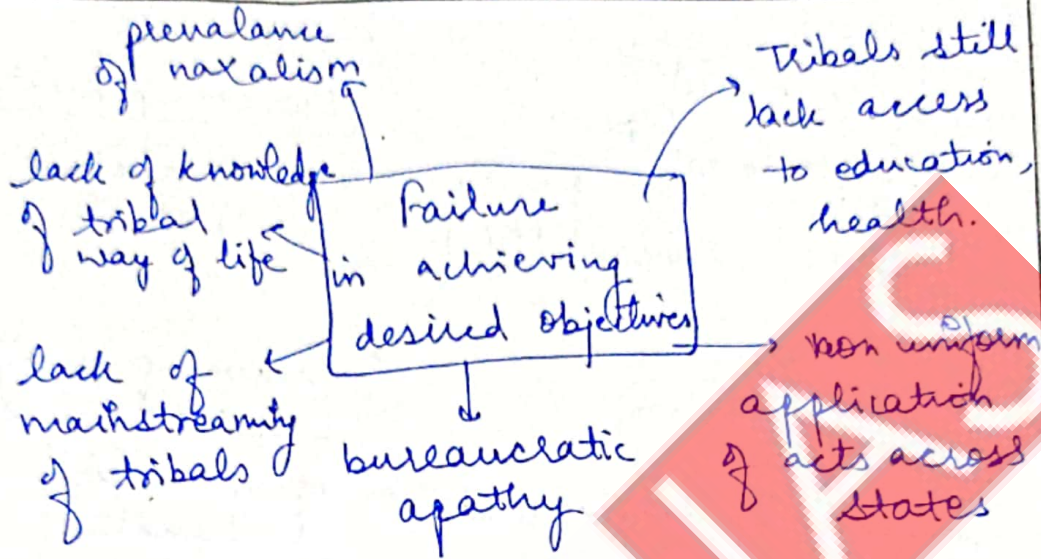 prevalance
of naxalism
Tribals still
lack access
to education,
health.
lack of knowledge
of tribal
way of life
Failure
in achieving
desired objectives
lack of
mainstreaming
of tribals
bureaucratic
apathy
non uniform
application
of acts across
states
IAS